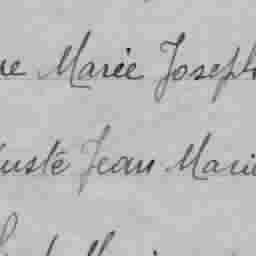 ne Marie Joseph
uste Jean Marie